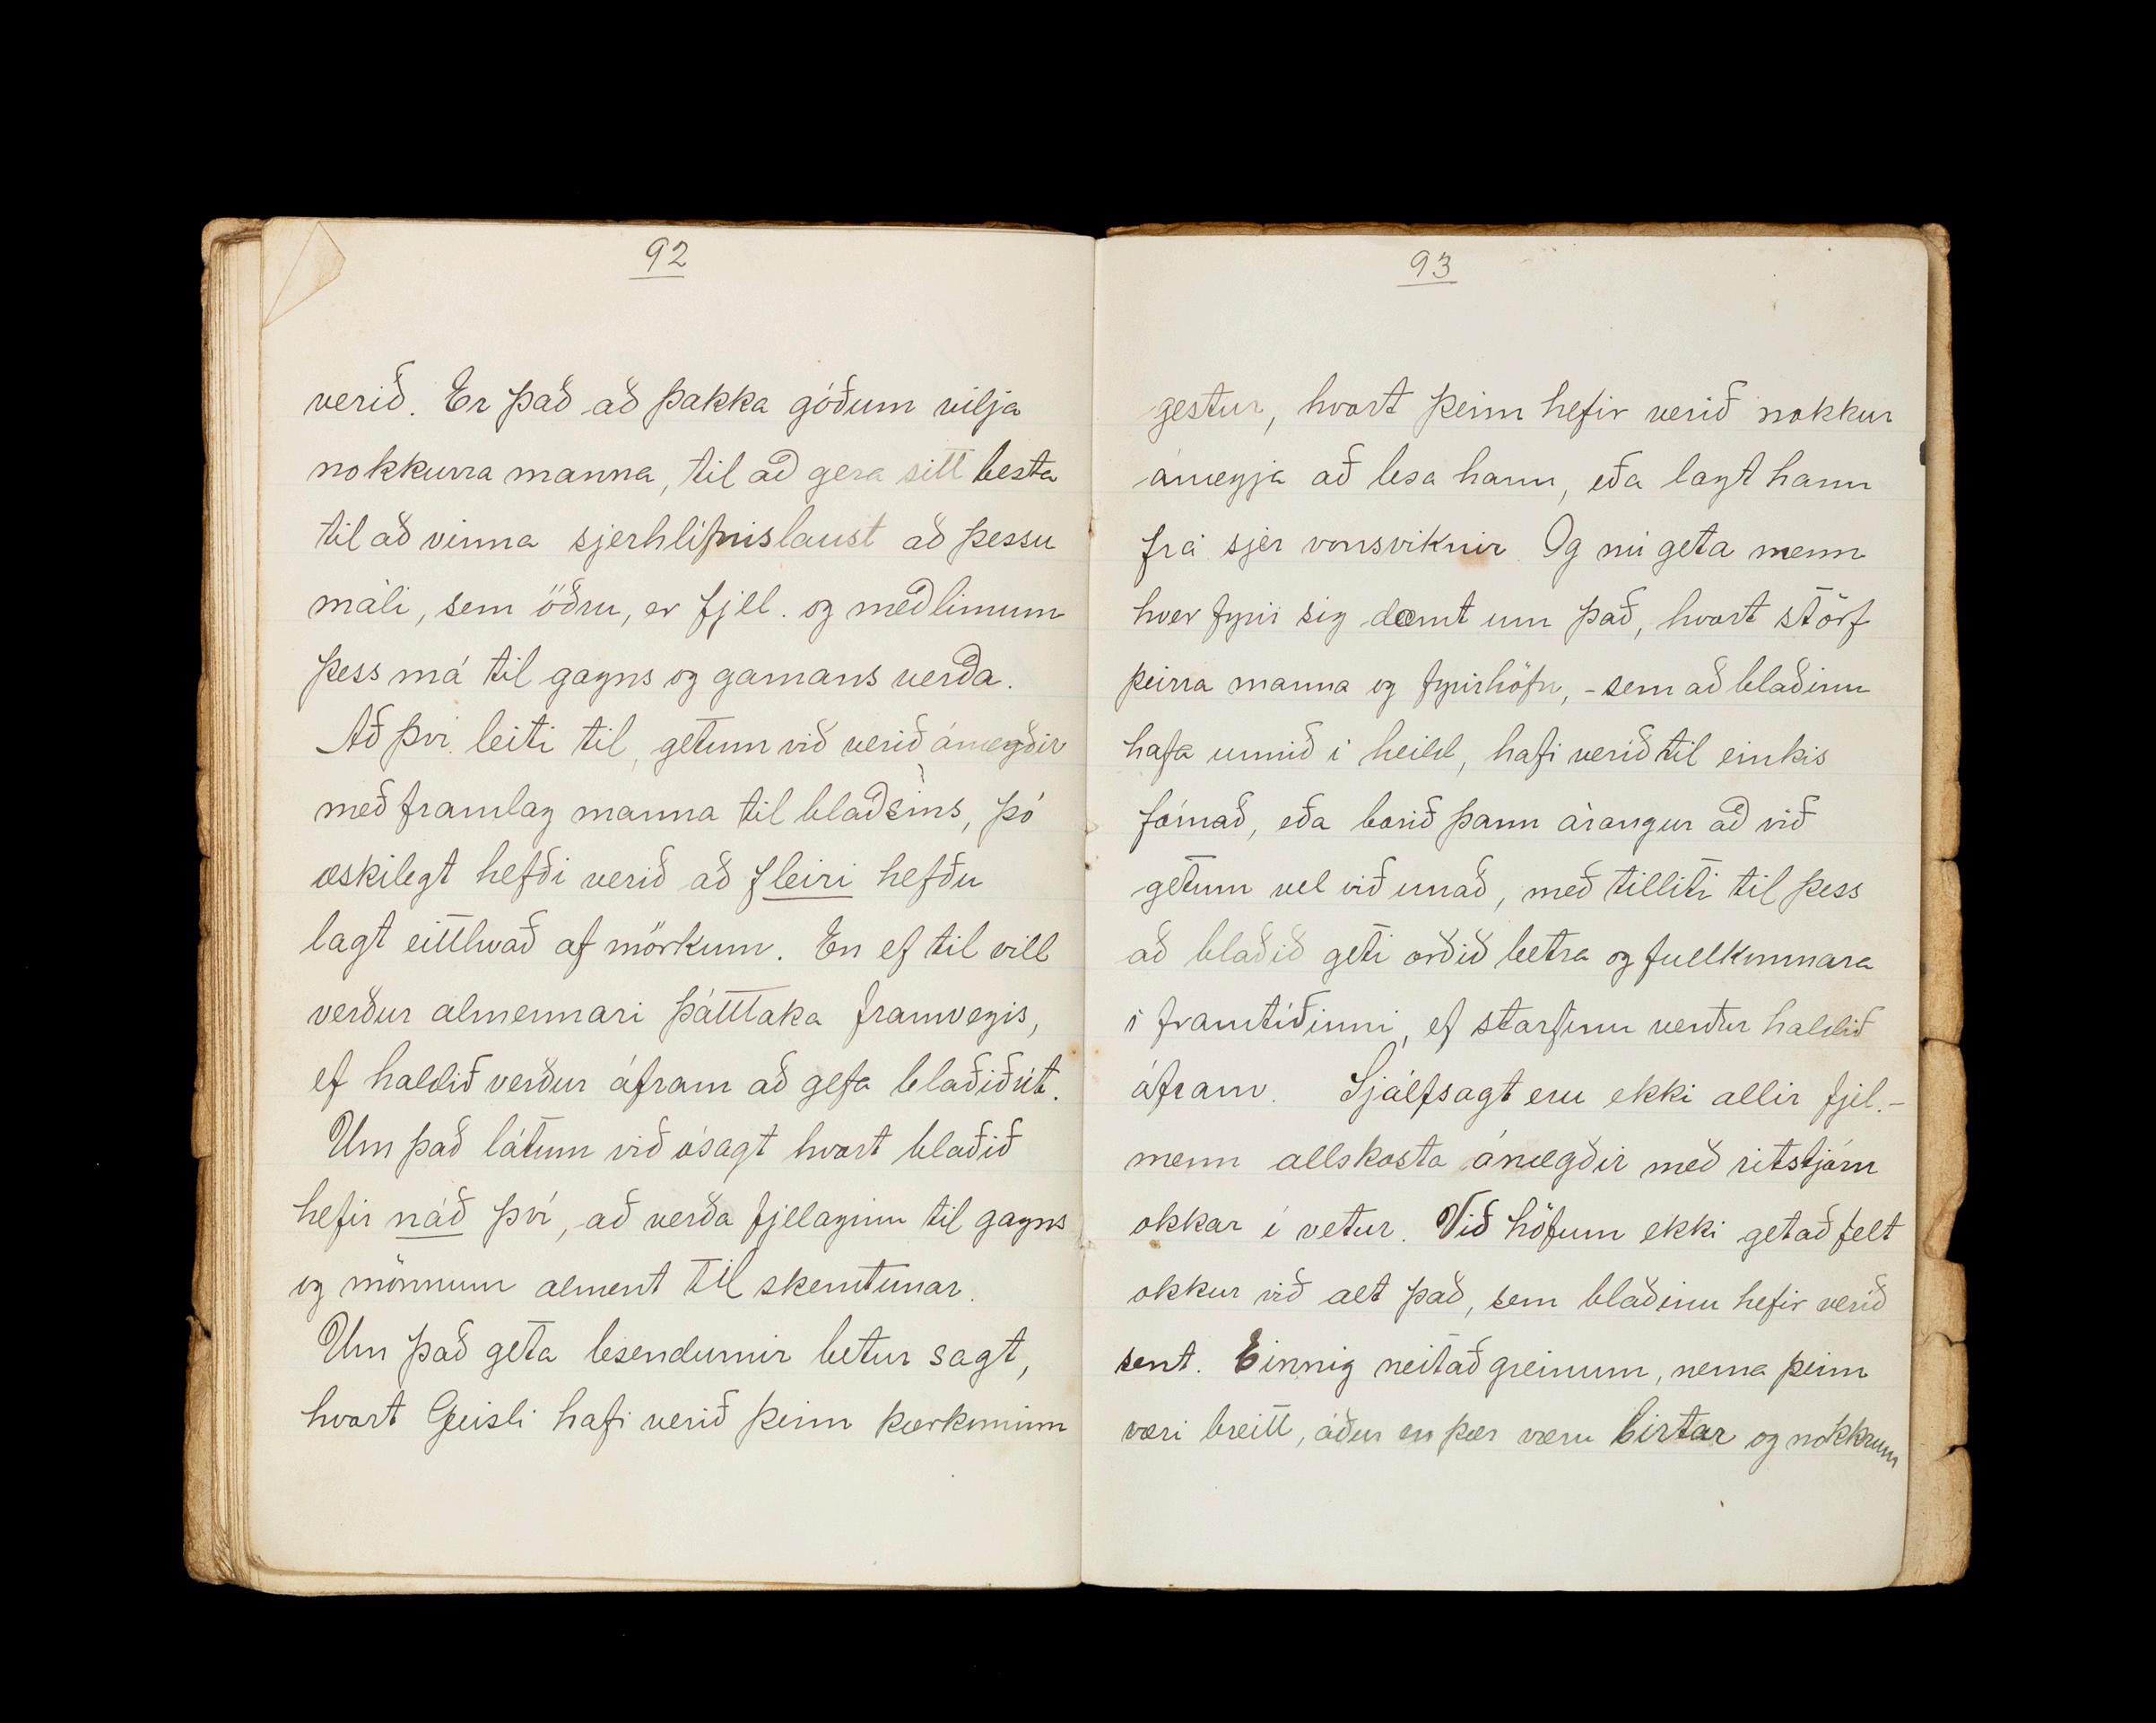 92
verið. Er það að þakka góðum vilja
nokkurra manna, til að gera sitt besta
til að vinna sjerhlífnislaust að þessu
máli, sem öðru, er fjell. og meðlimum
þess má til gagns og gamans verða.
Að því leiti til, getum við verið ánægðir
með framlag manna til blaðsins, þó
æskilegt hefði verið að fleiri hefðu
lagt eitthvað af mörkum. En ef til vill
verður almennari þátttaka framvegis,
ef haldið verður áfram að gefa blaðið út.
Um það látum við ósagt hvort blaðið
hefir náð því, að verða fjelaginu til gagns
og mönnum alment til skemtunar.
Um það geta lesendurnir betur sagt,
hvort Geisli hafi verið þeim kærkominn
93
gestur, hvort þeim hefir verið nokkur
ánægja að lesa hann, eða lagt hann
frá sjer vonsviknir. Og nú geta menn
hver fyrir sig dæmt um það, hvort störf
þeirra manna og fyrirhöfn, - sem að blaðinu
hafa unnið í heild, hafi verið til einkis
fórnað, eða borið þann árangur að við
getum vel við unað, með tilliti til þess
að blaðið geti orðið betra og fullkomnara
í framtíðinni, ef starfinu verður haldið
áfram. Sjálfsagt eru ekki allir fjel.-
menn allskosta ánægðir með ritstjórn
okkar í vetur. Við höfum ekki getað felt
okkur við alt það, sem blaðinu hefir verið
sent. Einnig neitað greinum, nema þeim
væri breitt, áður en þær væru birtar og nokkrum